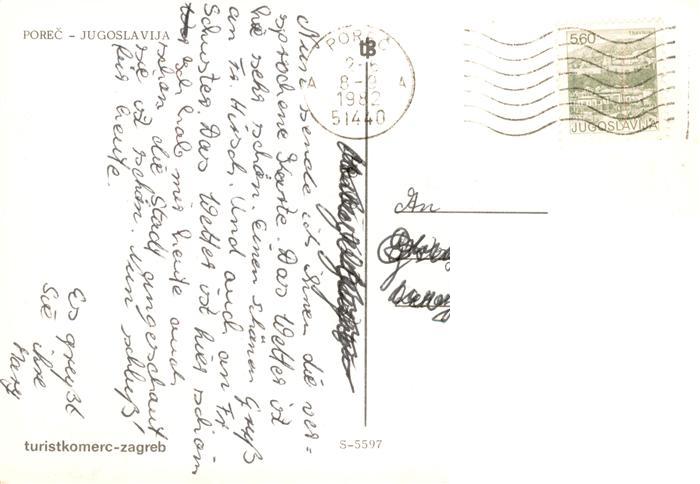 POREČ - JUGOSLAVIJA
Nun sende ich Ihnen die ver-
sprochene Karte. Das Wetter ist
hie sehr schön. Einen schönen Gruß
an Fr. Hirsch. Und auch an Fr.
Schuster. Das Wetter ist hier schön
Ich hab mir heute auch
schon die Stadt angeschaut
sie ist schön. Nun schluß!
für heute.
Es grüßt
Sie ihre
Mary
turistkomerc-zagreb
S-5597
tB
POREČ
A A
1982
51440
5,60
TRAVNIK
JUGOSLAVIJA
An